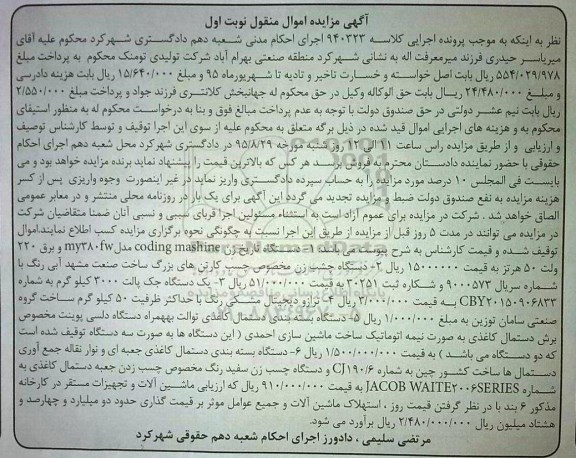 آگهی مزایده اموال منقول نوبت اول
نظر به اینکه به موجب پرونده اجرایی کلاسه ۹۴۰۳۲۳ اجرای احکام مدنی شعبه دهم دادگستری شهرکرد محکوم علیه آقای
میریاسر حیدری فرزند میرمعرفت اله به نشانی شهرکرد منطقه صنعتی بهرام آباد شرکت تولیدی نومنک محکوم به پرداخت مبلغ
۵۵۴/۰۲۹/۹۷۸ ریال بابت اصل خواسته و خسارت تاخیر و تادیه تا شهریورماه ۹۵ و مبلغ ۱۵/۶۴۰/۰۰۰ ریال بابت هزینه دادرسی
و مبلغ ۲۴/۴۸۰/۰۰۰ ریال بابت حق الوکاله وکیل در حق محکوم له جهانبخش کلانتری فرزند جواد و پرداخت مبلغ ۲/۵۵۰/۰۰۰
ریال بابت نیم عشر دولتی در حق صندوق دولت با توجه به عدم پرداخت مبالغ فوق و بنا به درخواست محکوم له به منظور استیفای
محکوم به و هزینه های اجرایی اموال قید شده در ذیل برگه متعلق به محکوم علیه از سوی این اجرا توقیف و توسط کارشناس توصیف
و ارزیابی و از طریق مزایده راس ساعت ۱۱ الی ۱۲ روز شنبه مورخه ۹۵/۸/۲۹ در دادگستری شهرکرد محل شعبه دهم اجرای احکام
حقوقی با حضور نماینده دادستان محترم به فروش برسد هر کس که بالاترین قیمت را پیشنهاد نماید برنده مزایده خواهد بود و می
بایست فی المجلس ۱۰ درصد مورد مزایده را به حساب سپرده دادگستری واریز نماید در غیر اینصورت وجوه واریزی پس از کسر
هزینه مزایده به نفع صندوق دولت ضبط و مزایده تجدید می گردد این آگهی برای یک بار در روزنامه محلی منتشر و در معابر عمومی
الصاق خواهد شد . شرکت در مزایده برای عموم آزاد است به استثناء مسئولین اجرا اقربای سببی و نسبی آنان ضمنا متقاضیان شرکت
در مزایده می توانند در مدت ۵ روز قبل از مزایده از طریق این اجرا نسبت به چگونگی نحوه برگزاری مزایده کسب اطلاع نمایند.اموال
توقیف شده و قیمت کارشناس به شرح پیوست می باشد ۱- دستگاه تاریخ زن coding mashine مدل my۳۸۰fw و برق ۲۲۰
ولت ۵۰ هرتز به قیمت ۱۵۰۰۰۰۰۰ ریال ۲- دستگاه چسب زن مخصوص چسب کارتن های بزرگ ساخت صنعت مشهد آبی رنگ با
شماره سریال ۹۰۰۰۵۷۳ و شکاره ثبت ۳۰۲۵۱ به قیمت ۵۱/۰۰۰/۰۰۰ ریال ۳- یک دستگاه جک پالت ۳۰۰۰ کیلو گرم به شماره
CBY۲۰۱۵۰۹۰۶۸۳۳ به قیمت ۳/۰۰۰/۰۰۰ ریال ۴- ترازو دیجیتال مشکی رنگ با حداکثر ظرفیت ۵۰ کیلو گرم ساخت گروه
صنعتی سامان توزین به مبلغ ۱/۰۰۰/۰۰۰ ریال ۵- دستگاه بسته بندی دستمال کاغذی توالت بهمراه دستگاه دلسی پوینت مخصوص
برش دستمال کاغذی به صورت نیمه اتوماتیک ساخت ماشین سازی احمدی ( این دستگاه ها به صورت سه دستگاه توقیف شده است
که دو دستگاه می باشد ) به قیمت ۱/۵۰۰/۰۰۰/۰۰۰ ریال ۶- دستگاه بسته بندی دستمال کاغذی جعبه ای و نوار نقاله جمع آوری
دستمال ها ساخت کشور چین به شماره CJ۱۹۰/۶ و دستگاه چسب زن سفید رنگ مخصوص چسب زدن جعبه دستمال کاغذی به
شماره JACOB WAITE۲۰۰۶SERIES به قیمت ۹۱۰/۰۰۰/۰۰۰ ریال که ارزیابی ماشین آلات و تجهیزات مستقر در کارخانه
مذکور ۶ بند با در نظر گرفتن قیمت روز ، استهلاک ماشین آلات و جمیع عوامل موثر بر قیمت گذاری حدود دو میلیارد و چهارصد و
هشتاد میلیون ریال ۲/۴۸۰/۰۰۰/۰۰۰ ریال برآورد می شود.
مرتضی سلیمی ، دادورز اجرای احکام شعبه دهم حقوقی شهرکرد